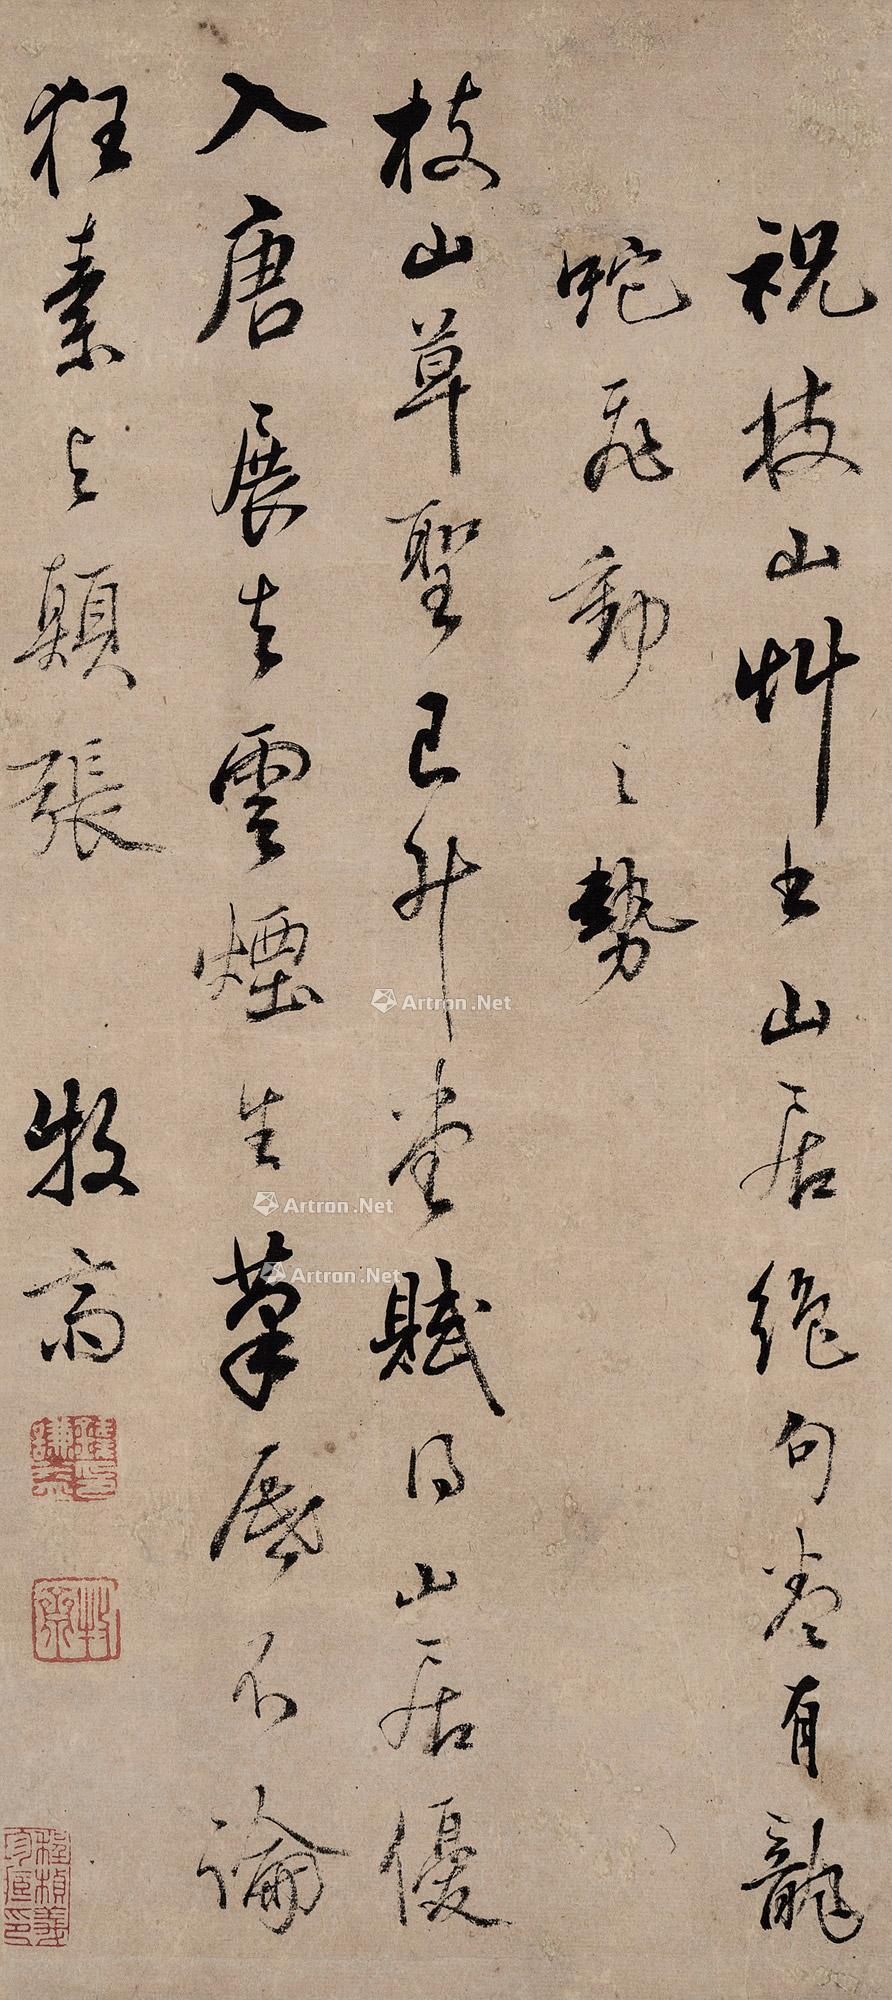 祝枝山艸書山居絕句卷有龍
蛇飛動之勢
枝山草聖已升堂賦得山居優
入唐展去雲煙生筆底不論
狂素与顛張
牧齋
牧齋
Artron.Net
Artron.Net
Artron.Net